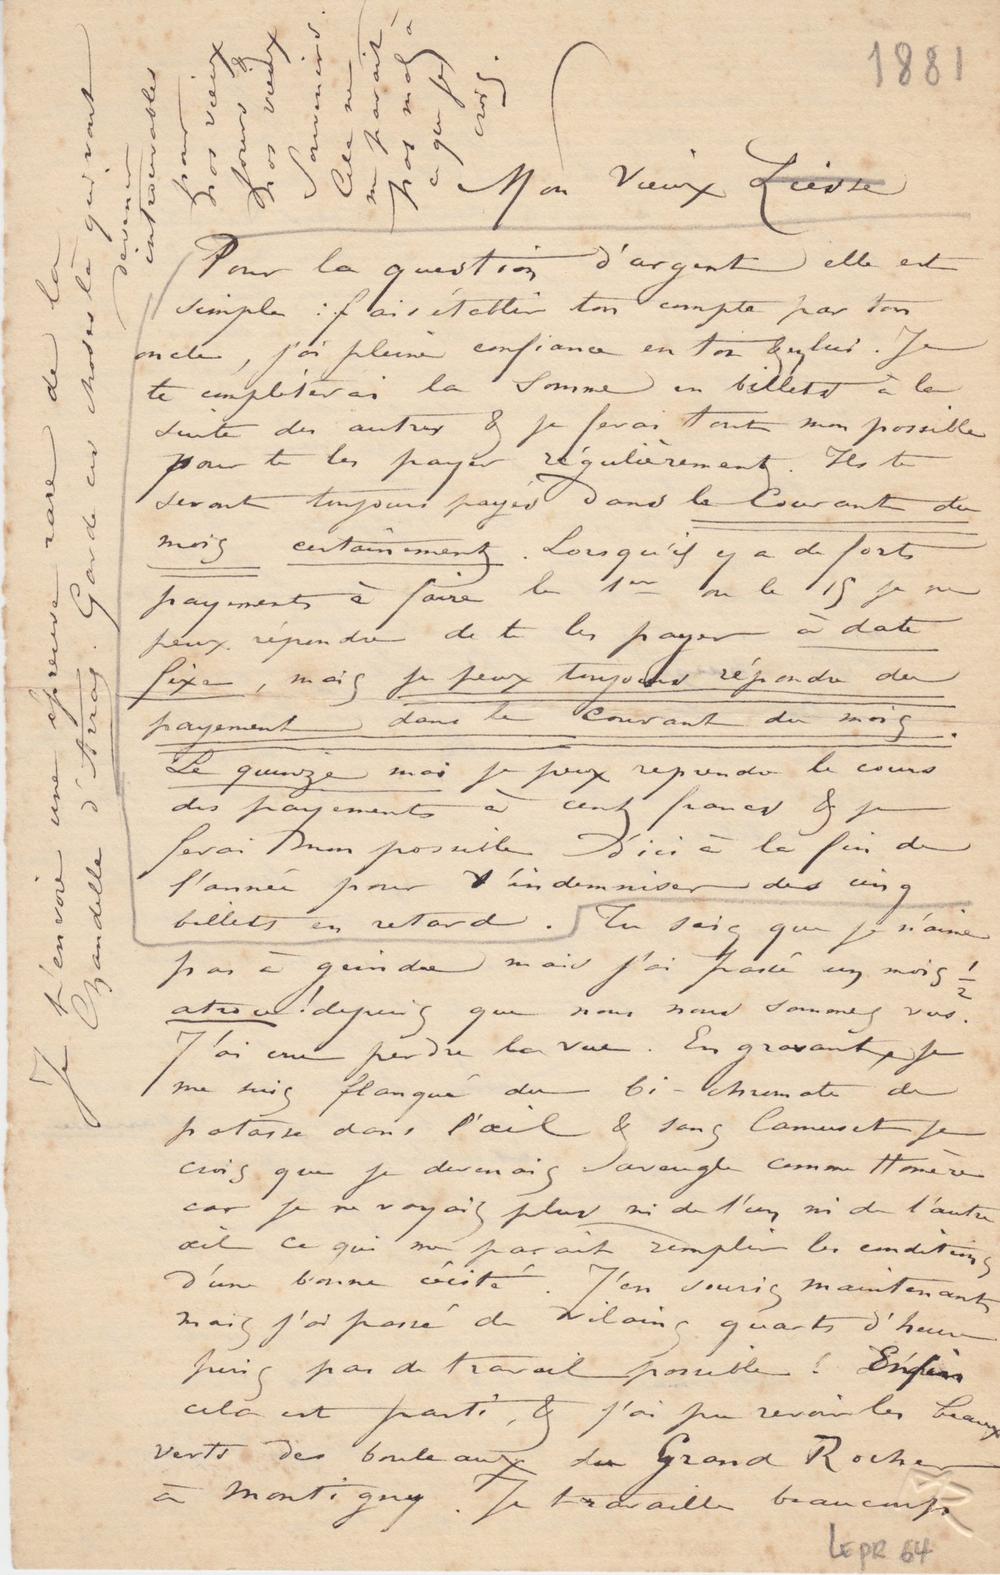 1881
Mon Vieux Liesse
Pour la question d'argent elle est
simple : fais établir ton compte par ton
oncle, j'ai pleine confiance en toi & en lui. Je
te complèterai la somme en billets à la
suite des autres & je ferai tout mon possible
pour te les payer régulièrement. Ils te
seront toujours payés dans le Courant du
mois certainement. Lorsqu'il y a de forts
payements à faire le 1er ou le 15 je ne
peux répondre de te les payer à date
fixe, mais je peux toujours répondre du
payement dans le courant du mois.
Le quinze mai je peux reprendre le cours
des payements à cent francs & je
ferai mon possible d'ici à la fin de
l'année pour t'indemniser des cinq
billets en retard. Tu sais que je n'aime
pas à geindre mais j'ai passé un mois 1/2
atroce ! depuis que nous nous sommes vus.
J'ai cru perdre la vue. En gravant, je
me suis flanqué du bi-chromate de
potasse dans l'œil & sans Camuset je
crois que je devenais aveugle comme Homère
car je ne voyais plus ni de l'un ni de l'autre
œil ce qui me paraît remplir les conditions
d'une bonne cécité. J'en souris maintenant
mais j'ai passé de vilains quarts d'heure
puis pas de travail possible ! Enfin
cela est parti, & j'ai pu revoir les beaux
verts des bouleaux du Grand Rocher
à Montigny. Je travaille beaucoup
Je t'envoie une épreuve rare de la
Chandelle d'Arras. Garde ces choses là qui vont
devenir
introuvables
pour
nos vieux
jours &
nos vieux
Souvenirs.
Cela ne
me paraît
pas mal à
ce que je
crois.
LEPR 64